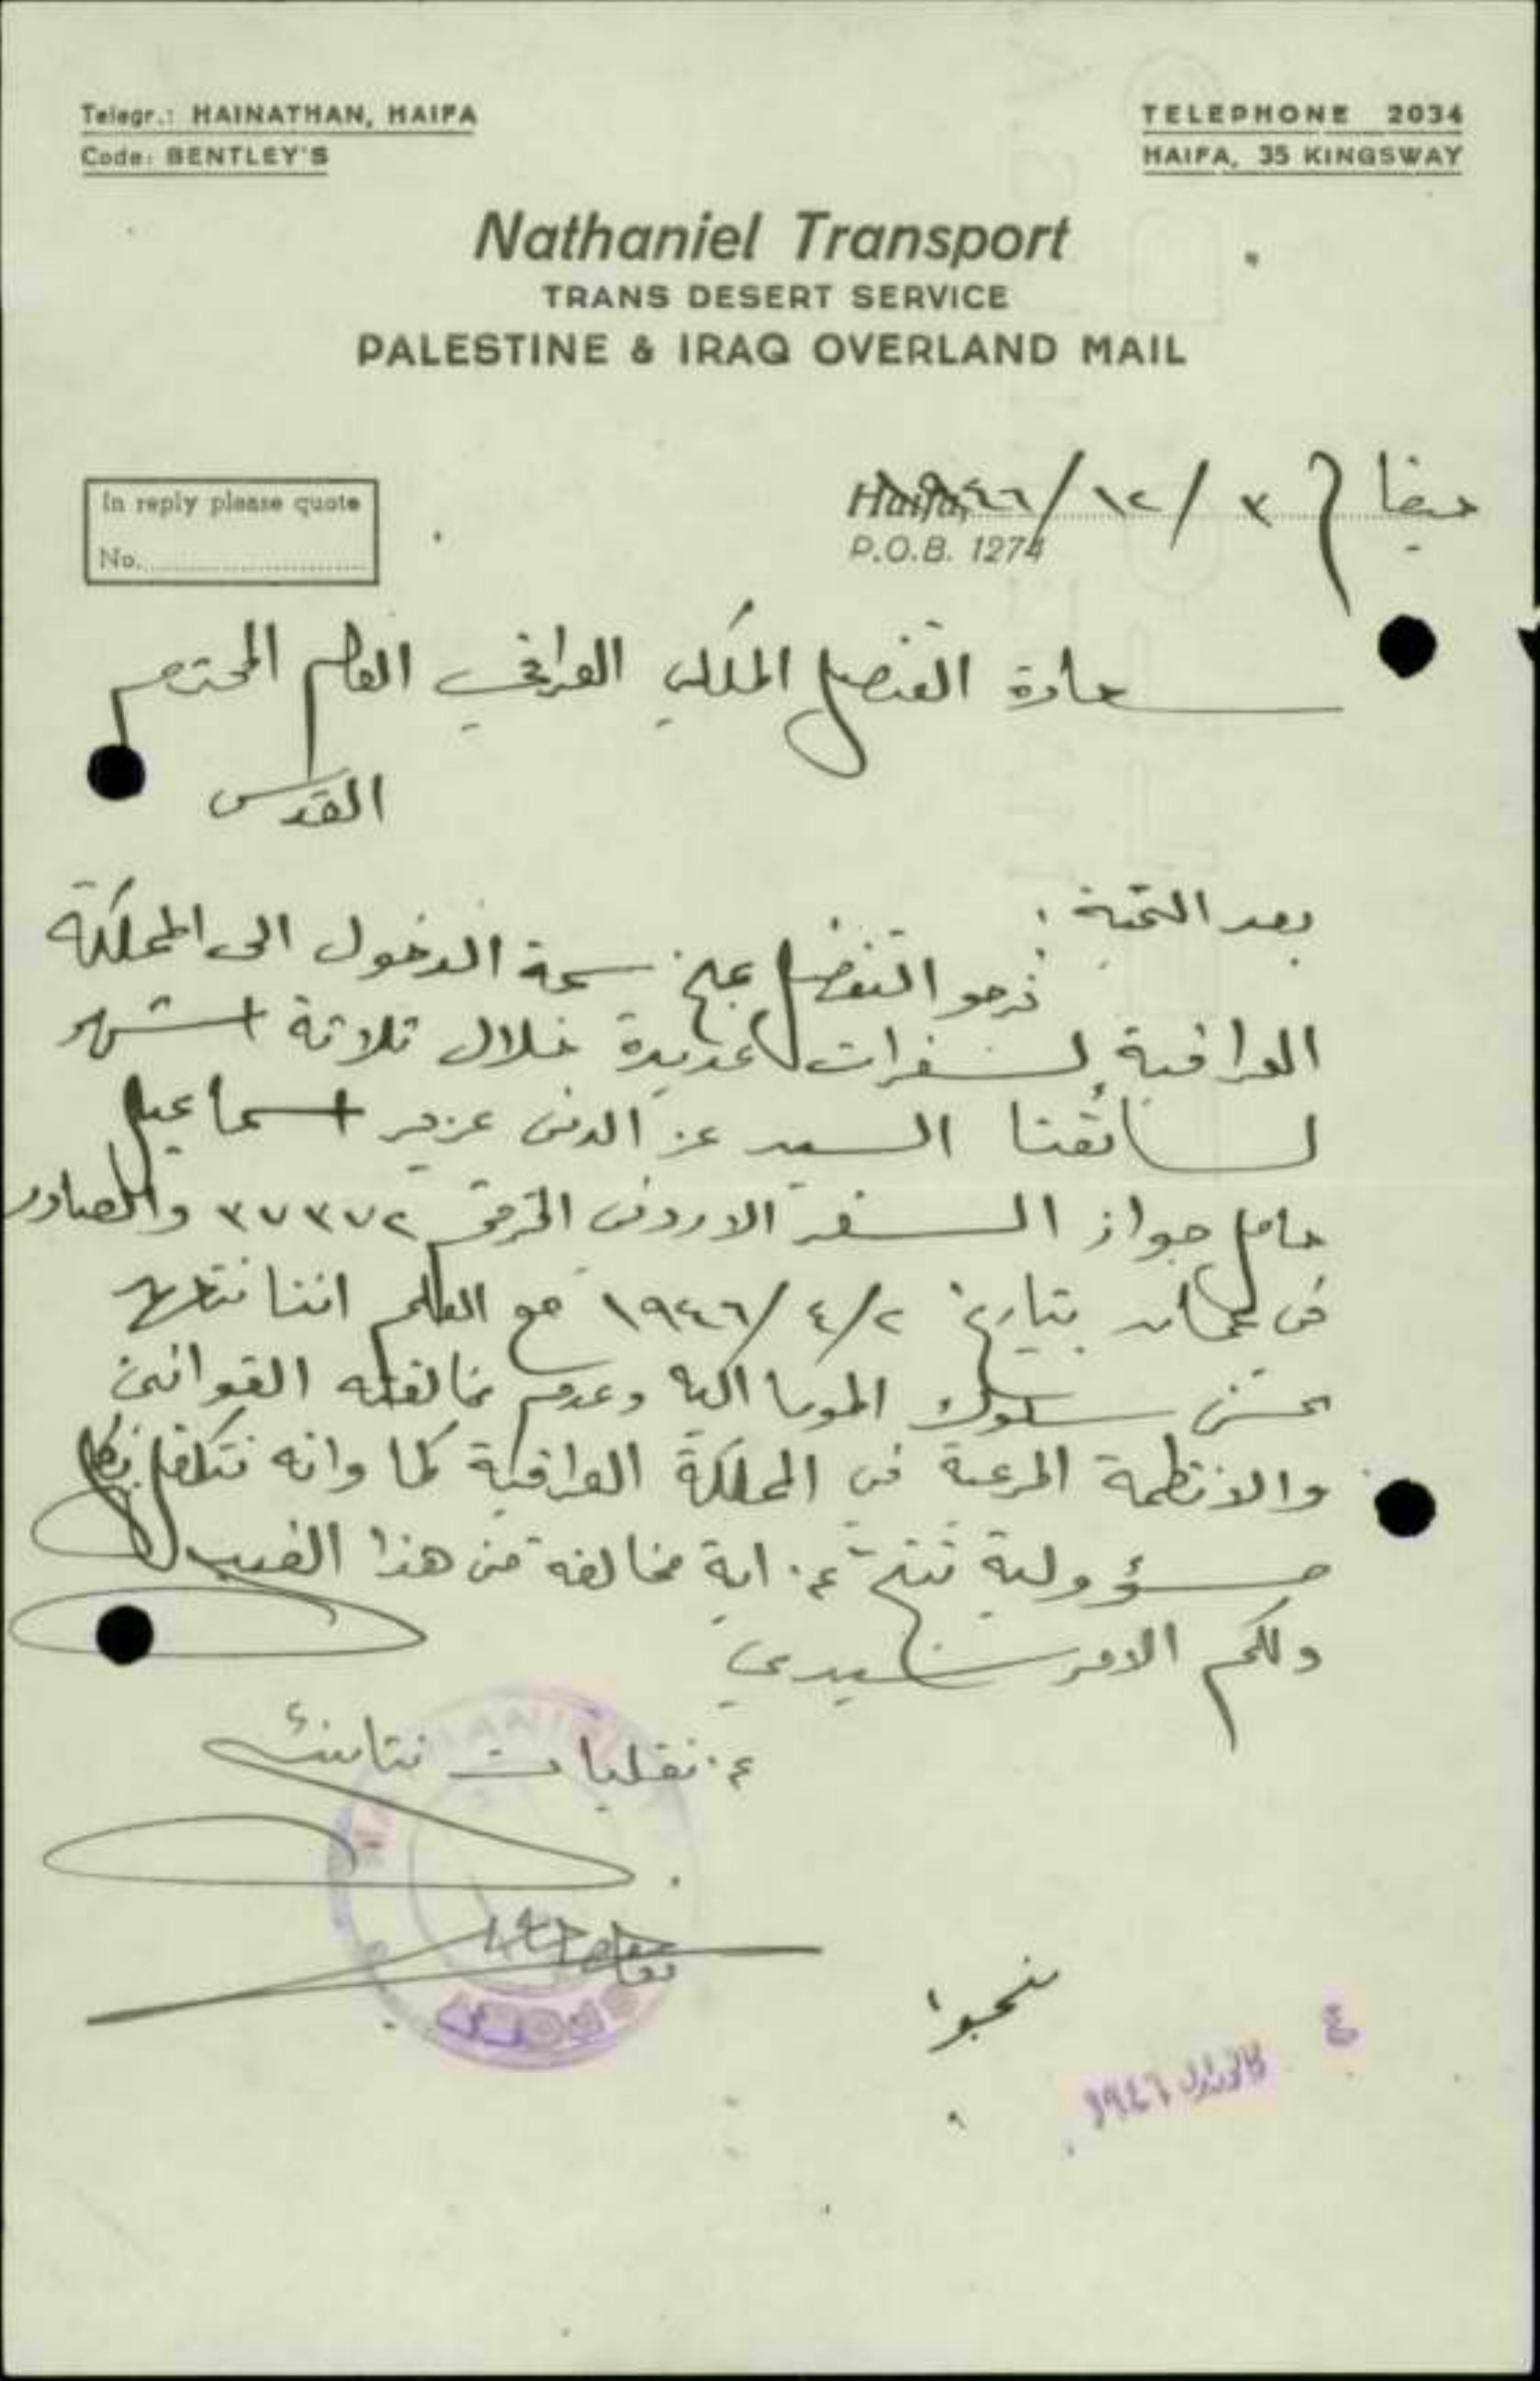 Telegr.: HAINATHAN, HAIFA
Code: BENTLEY'S
TELEPHONE 2034
HAIFA, 35 KINGSWAY
Nathaniel Transport
TRANS DESERT SERVICE
PALESTINE & IRAQ OVERLAND MAIL
In reply please quote
No.
Haifa,
P.O.B. 1274
حيفا في ٣/١٢/٤٦
سعادة القنصل الملكي العراقي العام المحترم
القدس
بعد التحية:
نرجو التفضل بمنح سمة الدخول الى المملكة
العراقية لسفرات عديدة خلال ثلاثة اشهر
لسائقنا السيد عز الدين عزير اسماعيل
حامل جواز السفر الاردني المرقم ٣٧٣٧٢ والصادر
في عمان بتاريخ ٢/٤/١٩٤٦ مع العلم اننا نتعهد
بحسن سلوك الموما اليه وعدم مخالفته القوانين
والانظمة المرعية في المملكة العراقية كما وانه نتكفل بكل
مسؤولية تنتج عن اية مخالفة من هذا القبيل
ولكم الامر سيدي
عن نقليات
٤
١٩٤٦